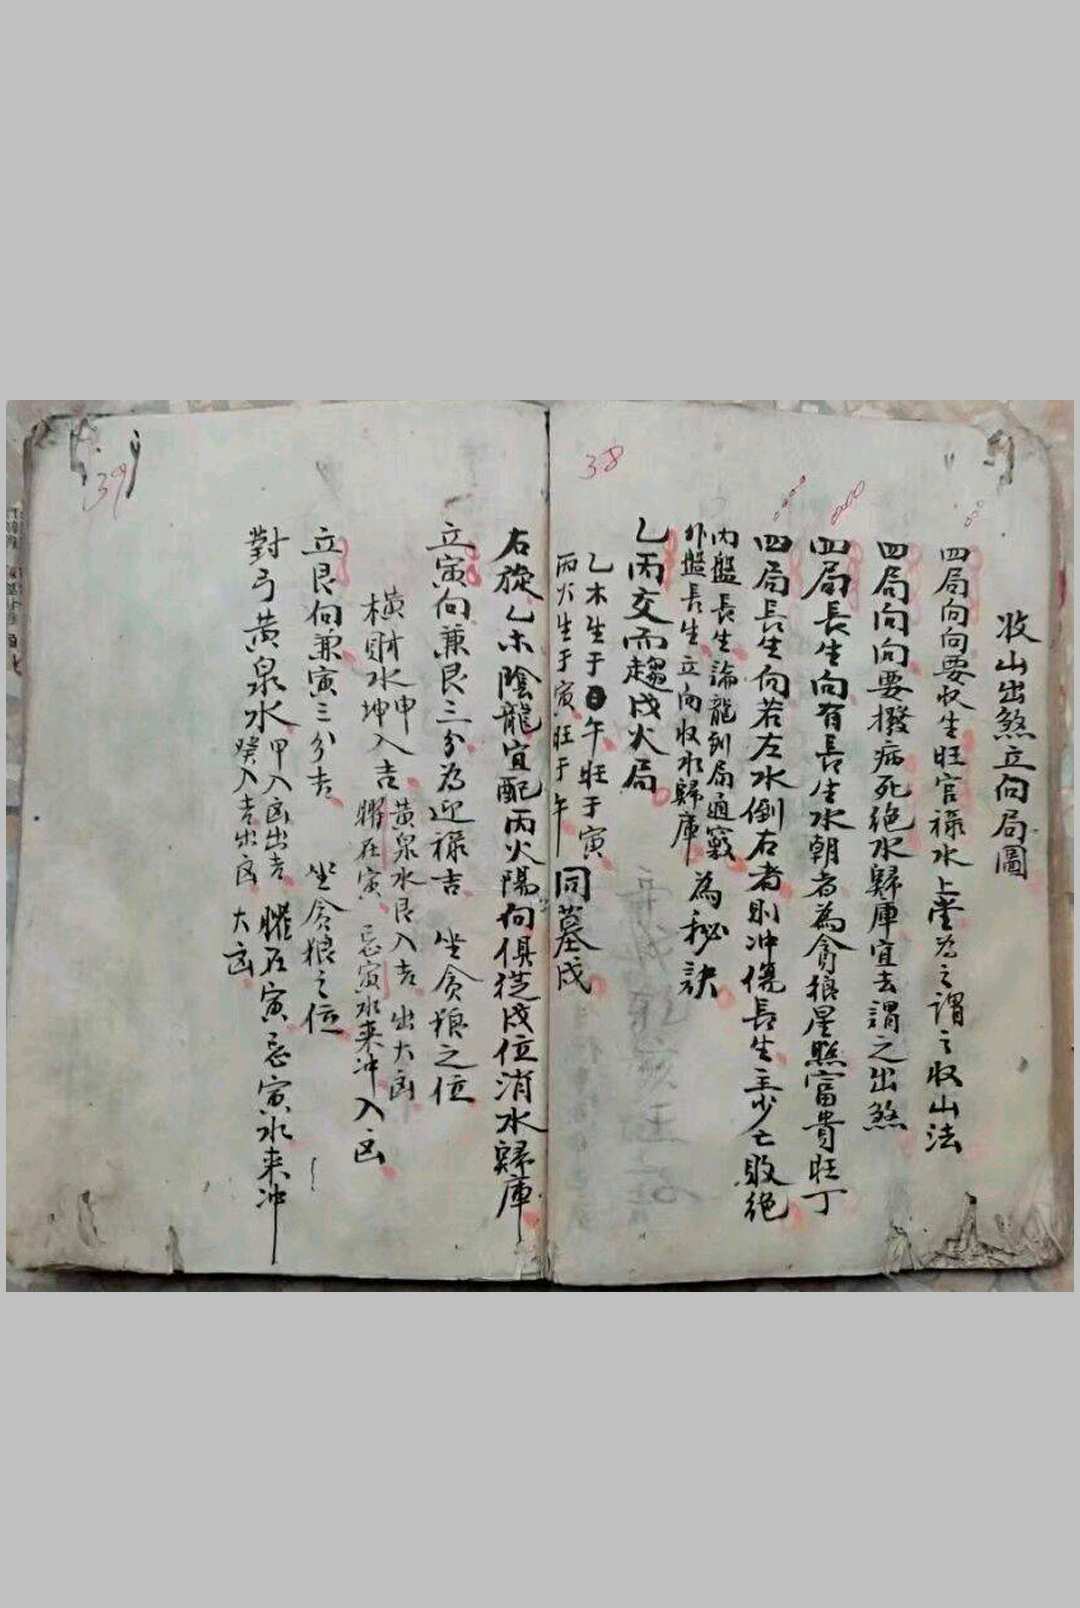 38
收山出煞立向局圖
四局向向要收生旺官祿水上堂為之謂之收山法
四局向向要撥病死絕水歸庫宜去謂之出煞
四局長生向有長生水朝者為貪狼星照富貴旺丁
四局長生向若左水倒右者則冲傷長生主少亡敗絕
內盤長生論龍到局通竅
外盤長生立向收水歸庫
為秘訣
乙丙交而趨戌火局
乙木生于午旺于寅
丙火生于寅旺于午
同墓戌
39
右旋乙木陰龍宜配丙火陽向俱從戌位消水歸庫
立寅向兼艮三分為迎祿吉 坐貪狼之位
橫財水申坤入吉
黃泉水艮入吉出大凶
曜在寅忌寅水来冲入凶
立艮向兼寅三分吉 坐貪狼之位
對弓黃泉水甲入凶出吉 曜在寅忌寅水来冲
癸入吉出凶 大凶